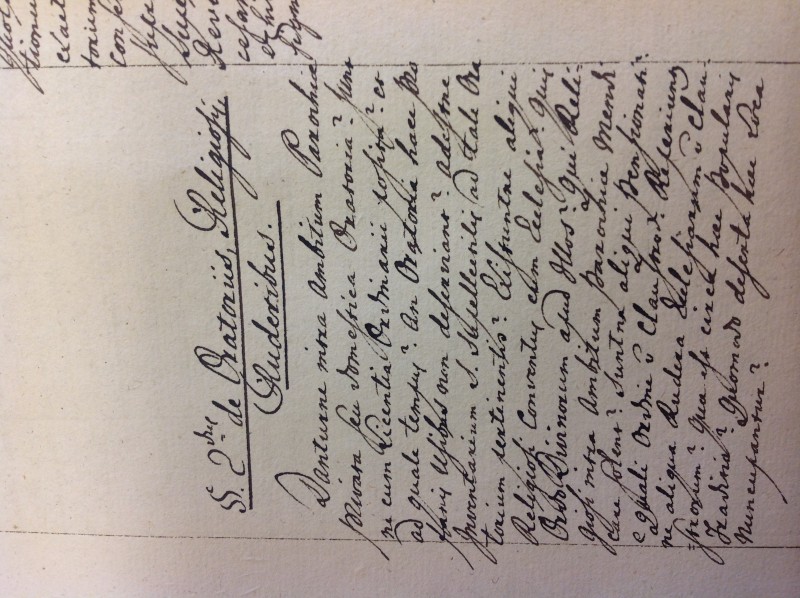 §. 2dus de Oratoriis, Religiosis,
Ruderibus.
Danturne intra ambitum Parochiæ
privata seu domestica Oratoria? Sunt
ne cum Licentia Ordinarii posita? et
ad quale tempus? An Oratoria hæc pro-
fanis usibus non deserviant? adestne
Inventarium S. Supellectilis ad tale Ora
torium pertinentis? Existuntne aliqui
Religiosi Conventus cum Ecclesia? quis
Ordo Divinorum apud Illos? qui Reli-
giosi intra Ambitum Parochiæ Mendi
care solent? Suntne aliqui Pensionati?
e quali Ordine et Claustro? Reperiunt
ne aliqua Rudera Ecclesiarum et Clau-
strorum? qua est circa hæc Popularis
Traditio? Quomodo deserta hæc Loca
nuncupantur?